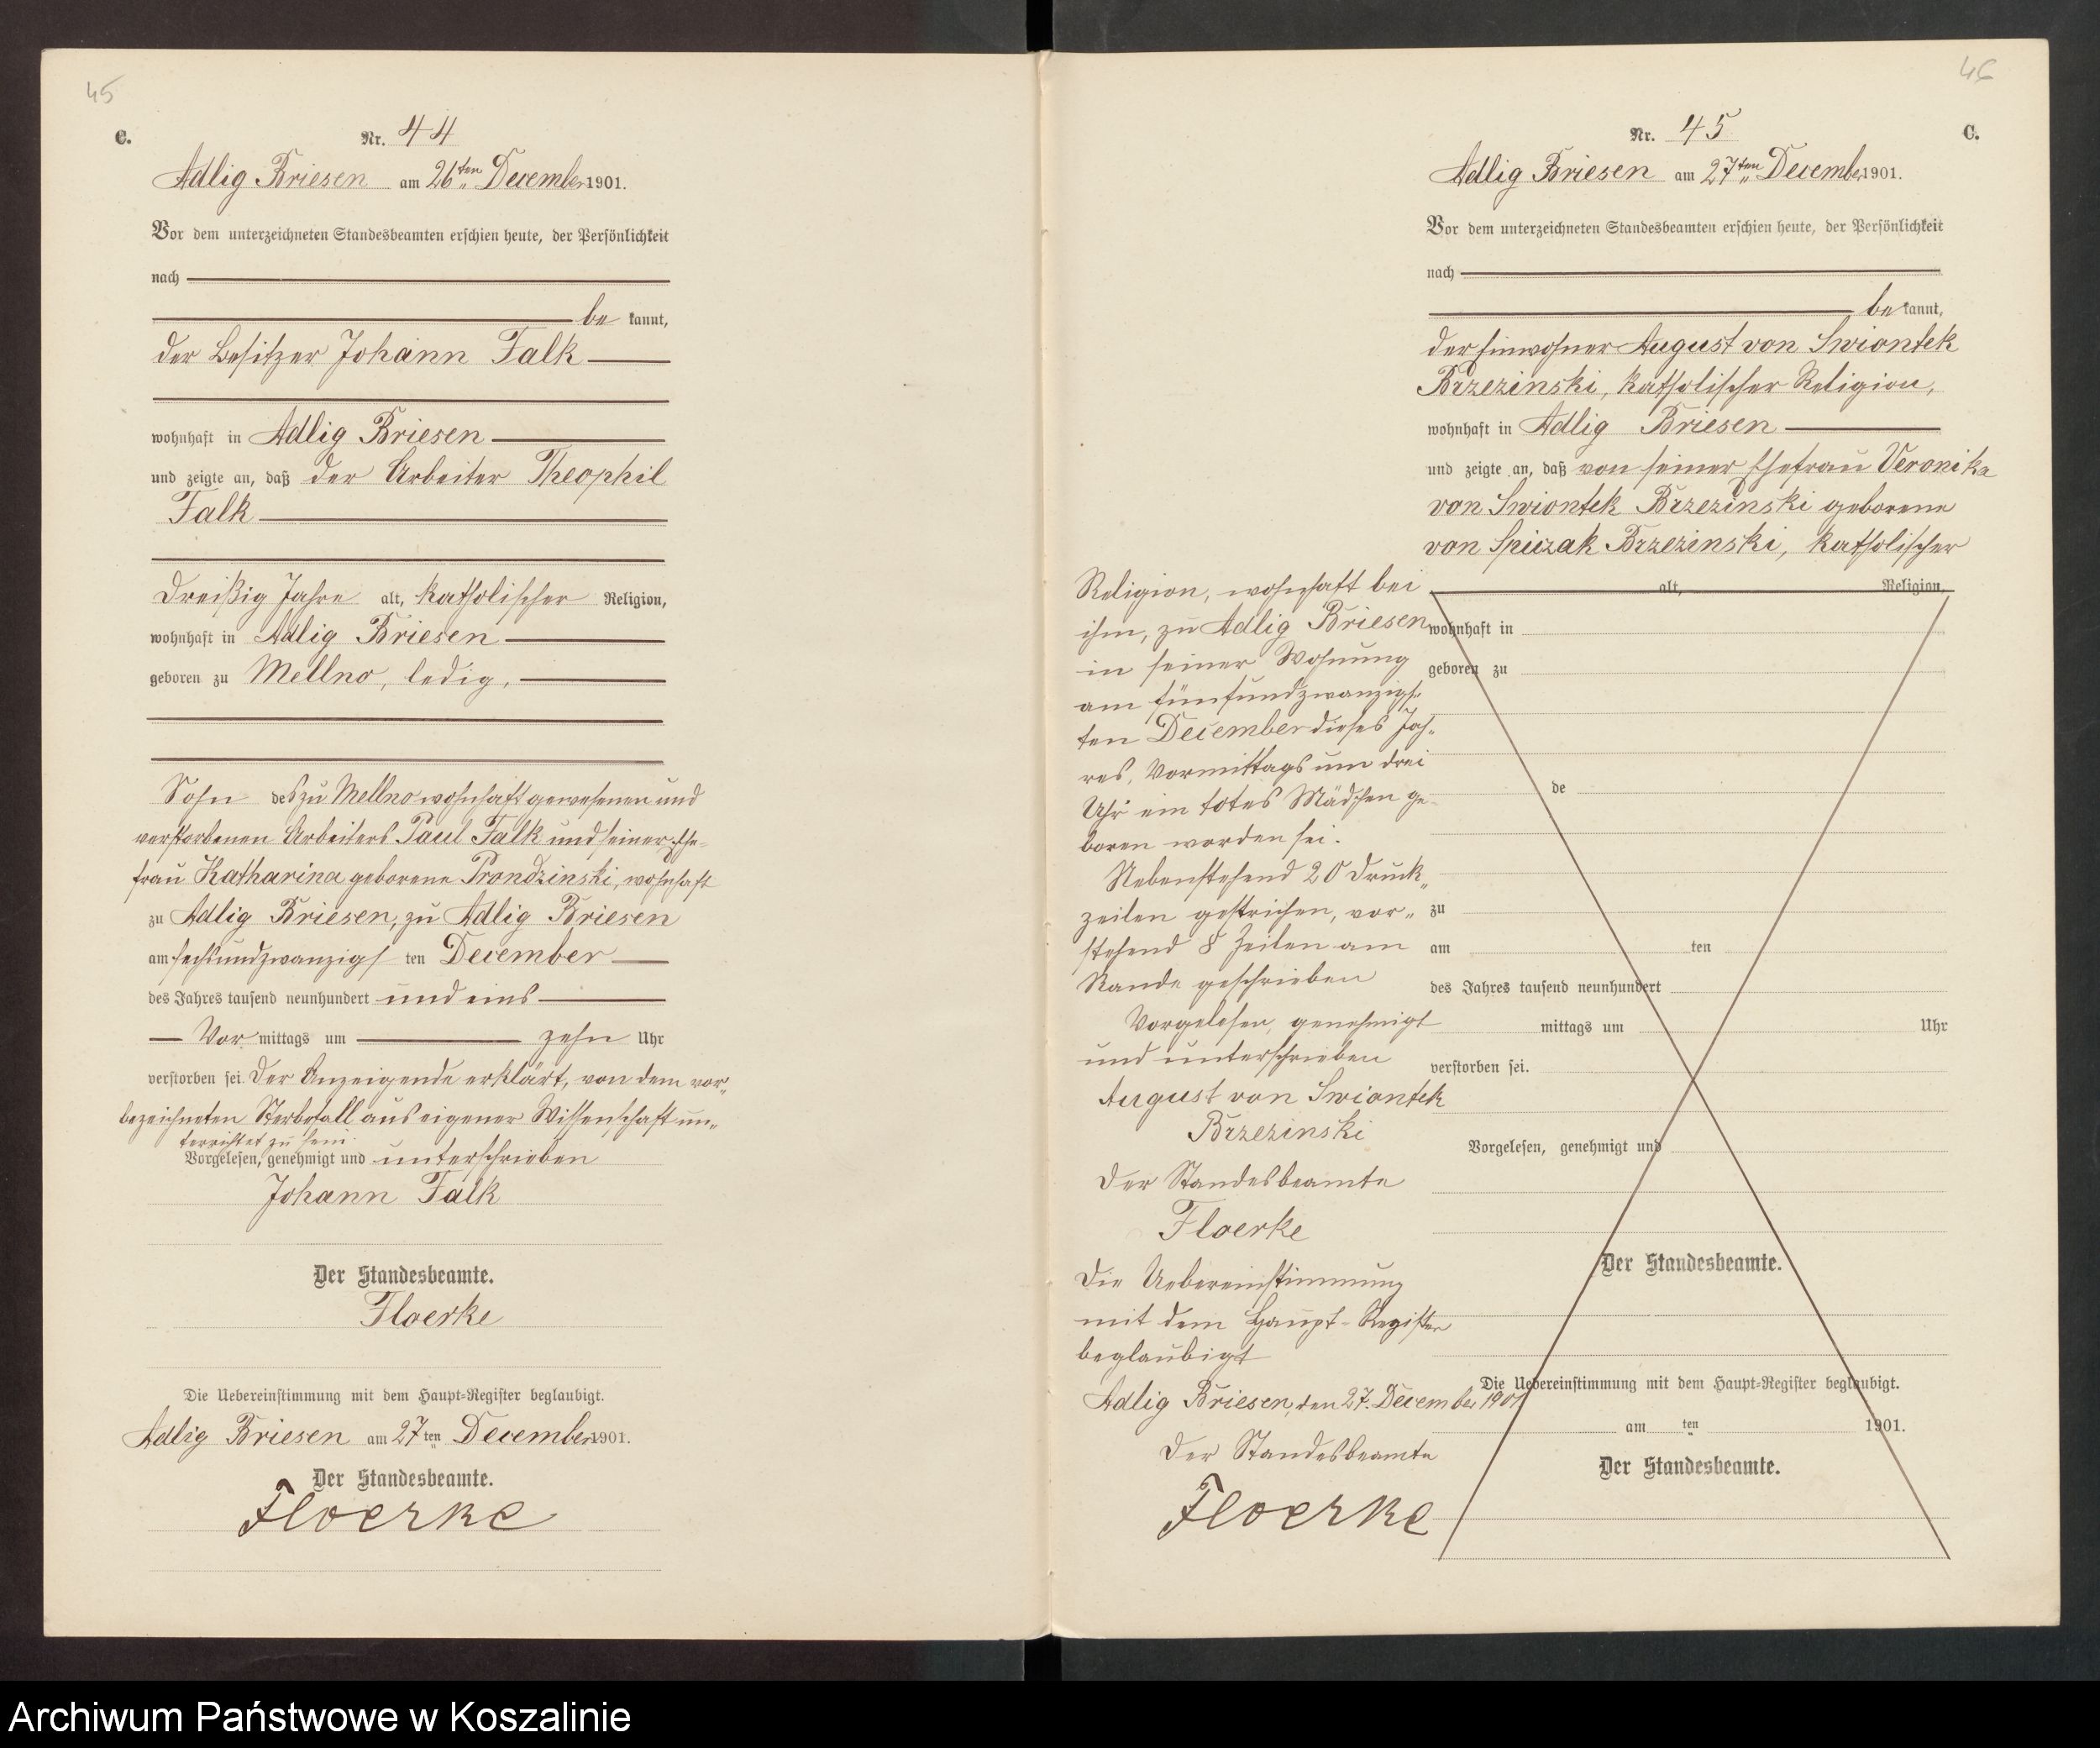 45
C.
Nr. 44
Adlig Briesen am 26ten December 1901.
Vor dem unterzeichneten Standesbeamten erschien heute, der Persönlichkeit
nach
be kannt,
der Besitzer Johann Falk
wohnhaft in Adlig Briesen
und zeigte an, daß der Arbeiter Theophil
Falk
dreißig Jahre alt, katholischer Religion,
wohnhaft in Adlig Briesen
geboren zu Mellno, ledig,
Sohn des zu Mellno wohnhaft gewesenen und
verstorbenen Arbeiters Paul Falk und seiner Ehe-
frau Katharina geborene Prondzinski, wohnhaft
zu Adlig Briesen, zu Adlig Briesen
am sechsundzwanzigs ten December
des Jahres tausend neunhundert und eins
Vor mittags um zehn Uhr
verstorben sei. Der Anzeigende erklärt, von dem vor„
bezeichneten Sterbefall aus eigener Wissenschaft un„
terrichtet zu sein.
Vorgelesen, genehmigt und unterschrieben
Johann Falk
Der Standesbeamte.
Floerke
Die Uebereinstimmung mit dem Haupt-Register beglaubigt.
Adlig Briesen am 27ten December 1901.
Der Standesbeamte.
Floerke
46
C.
Nr. 45
Adlig Briesen am 27ten December 1901.
Vor dem unterzeichneten Standesbeamten erschien heute, der Persönlichkeit
nach
be kannt,
der Einwohner August von Swiontek
Brzezinski, katholischer Religion,
wohnhaft in Adlig Briesen
und zeigte an, daß von seiner Ehefrau Veronika
von Swiontek Brzezinski geborene
von Spiczak Brzezinski, katholischer
Religion, wohnhaft bei
ihm, zu Adlig Briesen
in seiner Wohnung
am fünfundzwanzigs„
ten December dieses Jah„
res, Vormittags um drei
Uhr ein totes Mädchen ge-
boren worden sei.
Nebenstehend 20 Druck„
zeilen gestrichen, vor„
stehend 8 Zeilen am
Rande geschrieben
Vorgelesen, genehmigt
und unterschrieben
August von Swiontek
Brzezinski
Der Standesbeamte
Floerke
Die Uebereinstimmung
mit dem Haupt-Register
beglaubigt
Adlig Briesen, den 27. December 1901
Der Standesbeamte
Floerke
alt, Religion,
wohnhaft in
geboren zu
de
zu
am ten
des Jahres tausend neunhundert
mittags um Uhr
verstorben sei.
Vorgelesen, genehmigt und
Der Standesbeamte.
Die Uebereinstimmung mit dem Haupt-Register beglaubigt.
am ten 1901.
Der Standesbeamte.
Archiwum Państwowe w Koszalinie